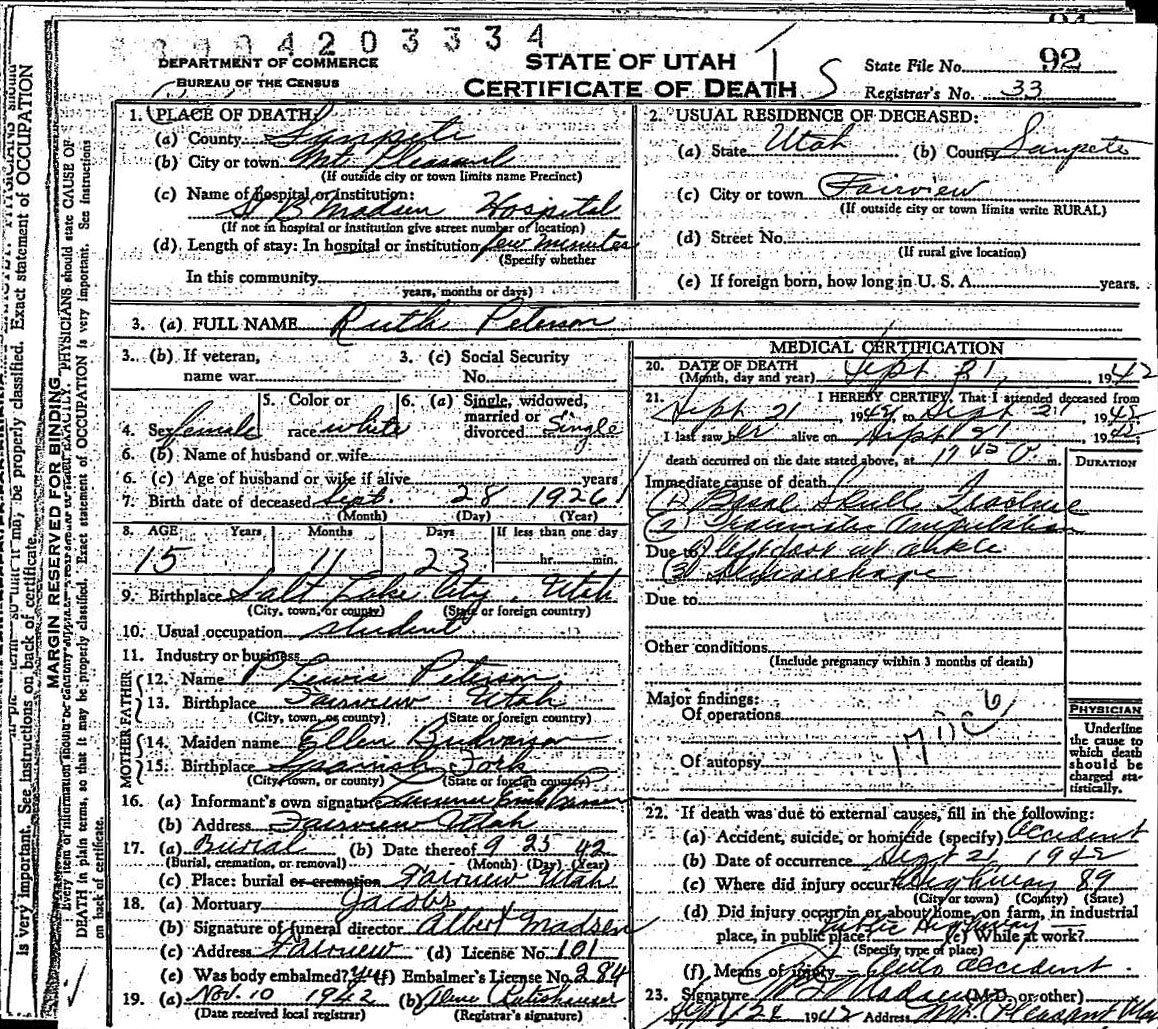 04203334
DEPARTMENT OF COMMERCE
BUREAU OF THE CENSUS
STATE OF UTAH
CERTIFICATE OF DEATH
State File No. 92
Registrar's No. 33
is very important. See instructions on back of certificate.
Exact statement of OCCUPATION
MARGIN RESERVED FOR BINDING
PHYSICIANS should state CAUSE OF
DEATH in plain terms, so that it may be properly classified. Exact statement of OCCUPATION is very important. See instructions
on back of certificate.
1. PLACE OF DEATH
(a) County Sanpete
(b) City or town Mt Pleasant
(If outside city or town limits name Precinct)
(c) Name of hospital or institution:
Madsen Hospital
(If not in hospital or institution give street number of location)
(d) Length of stay: In hospital or institution few minutes
(Specify whether
In this community
years, months or days)
2. USUAL RESIDENCE OF DECEASED:
(a) State Utah (b) County Sanpete
(c) City or town Fairview
(If outside city or town limits write RURAL)
(d) Street No.
(If rural give location)
(e) If foreign born, how long in U. S. A. years.
3. (a) FULL NAME Ruth Peterson
3. (b) If veteran,
name war
3. (c) Social Security
No.
4. Sex female
5. Color or
race white
6. (a) Single, widowed,
married or
divorced Single
6. (b) Name of husband or wife
6. (c) Age of husband or wife if alive years
7. Birth date of deceased Sept. 28 1926
(Month) (Day) (Year)
8. AGE Years Months Days If less than one day
15 11 23 hr. min.
9. Birthplace Salt Lake City, Utah
(City, town, or county) (State or foreign country)
10. Usual occupation student
11. Industry or business
MOTHER FATHER
12. Name P Lewis Peterson
13. Birthplace Fairview Utah
(City, town, or county) (State or foreign country)
14. Maiden name Ellen
15. Birthplace Spanish Fork
(City, town, or county) (State or foreign country)
16. (a) Informant's own signature
(b) Address Fairview Utah
17. (a) Burial (b) Date thereof 9 25 42
(Burial, cremation, or removal) (Month) (Day) (Year)
(c) Place: burial or cremation Fairview Utah
18. (a) Mortuary Jacobs
(b) Signature of funeral director Albert Madsen
(c) Address Fairview (d) License No. 101
(e) Was body embalmed? yes (f) Embalmer's License No. 284
19. (a) Nov. 10 1942 (b)
(Date received local registrar) (Registrar's signature)
MEDICAL CERTIFICATION
20. DATE OF DEATH
(Month, day and year) Sept 21, 1942
21. I HEREBY CERTIFY, That I attended deceased from
Sept 21 1942 to Sept 21 1942
I last saw er alive on Sept 21 1942;
death occurred on the date stated above, at m.
DURATION
Immediate cause of death
(1) Basal Skull Fracture
(2) Traumatic Amputation
Due to left foot at ankle
(3)
Due to
Other conditions
(Include pregnancy within 3 months of death)
Major findings:
Of operations
Of autopsy
PHYSICIAN
Underline
the cause to
which death
should be
charged sta-
tistically.
22. If death was due to external causes, fill in the following:
(a) Accident, suicide, or homicide (specify) Accident
(b) Date of occurrence Sept 21, 1942
(c) Where did injury occur? Highway 89
(City or town) (County) (State)
(d) Did injury occur in or about home, on farm, in industrial
place, in public place? Public Highway (e) While at work?
(Specify type of place)
(f) Means of injury Auto accident
23. Signature Madsen (M.D. or other)
Sept 24 1942 Address Mt. Pleasant